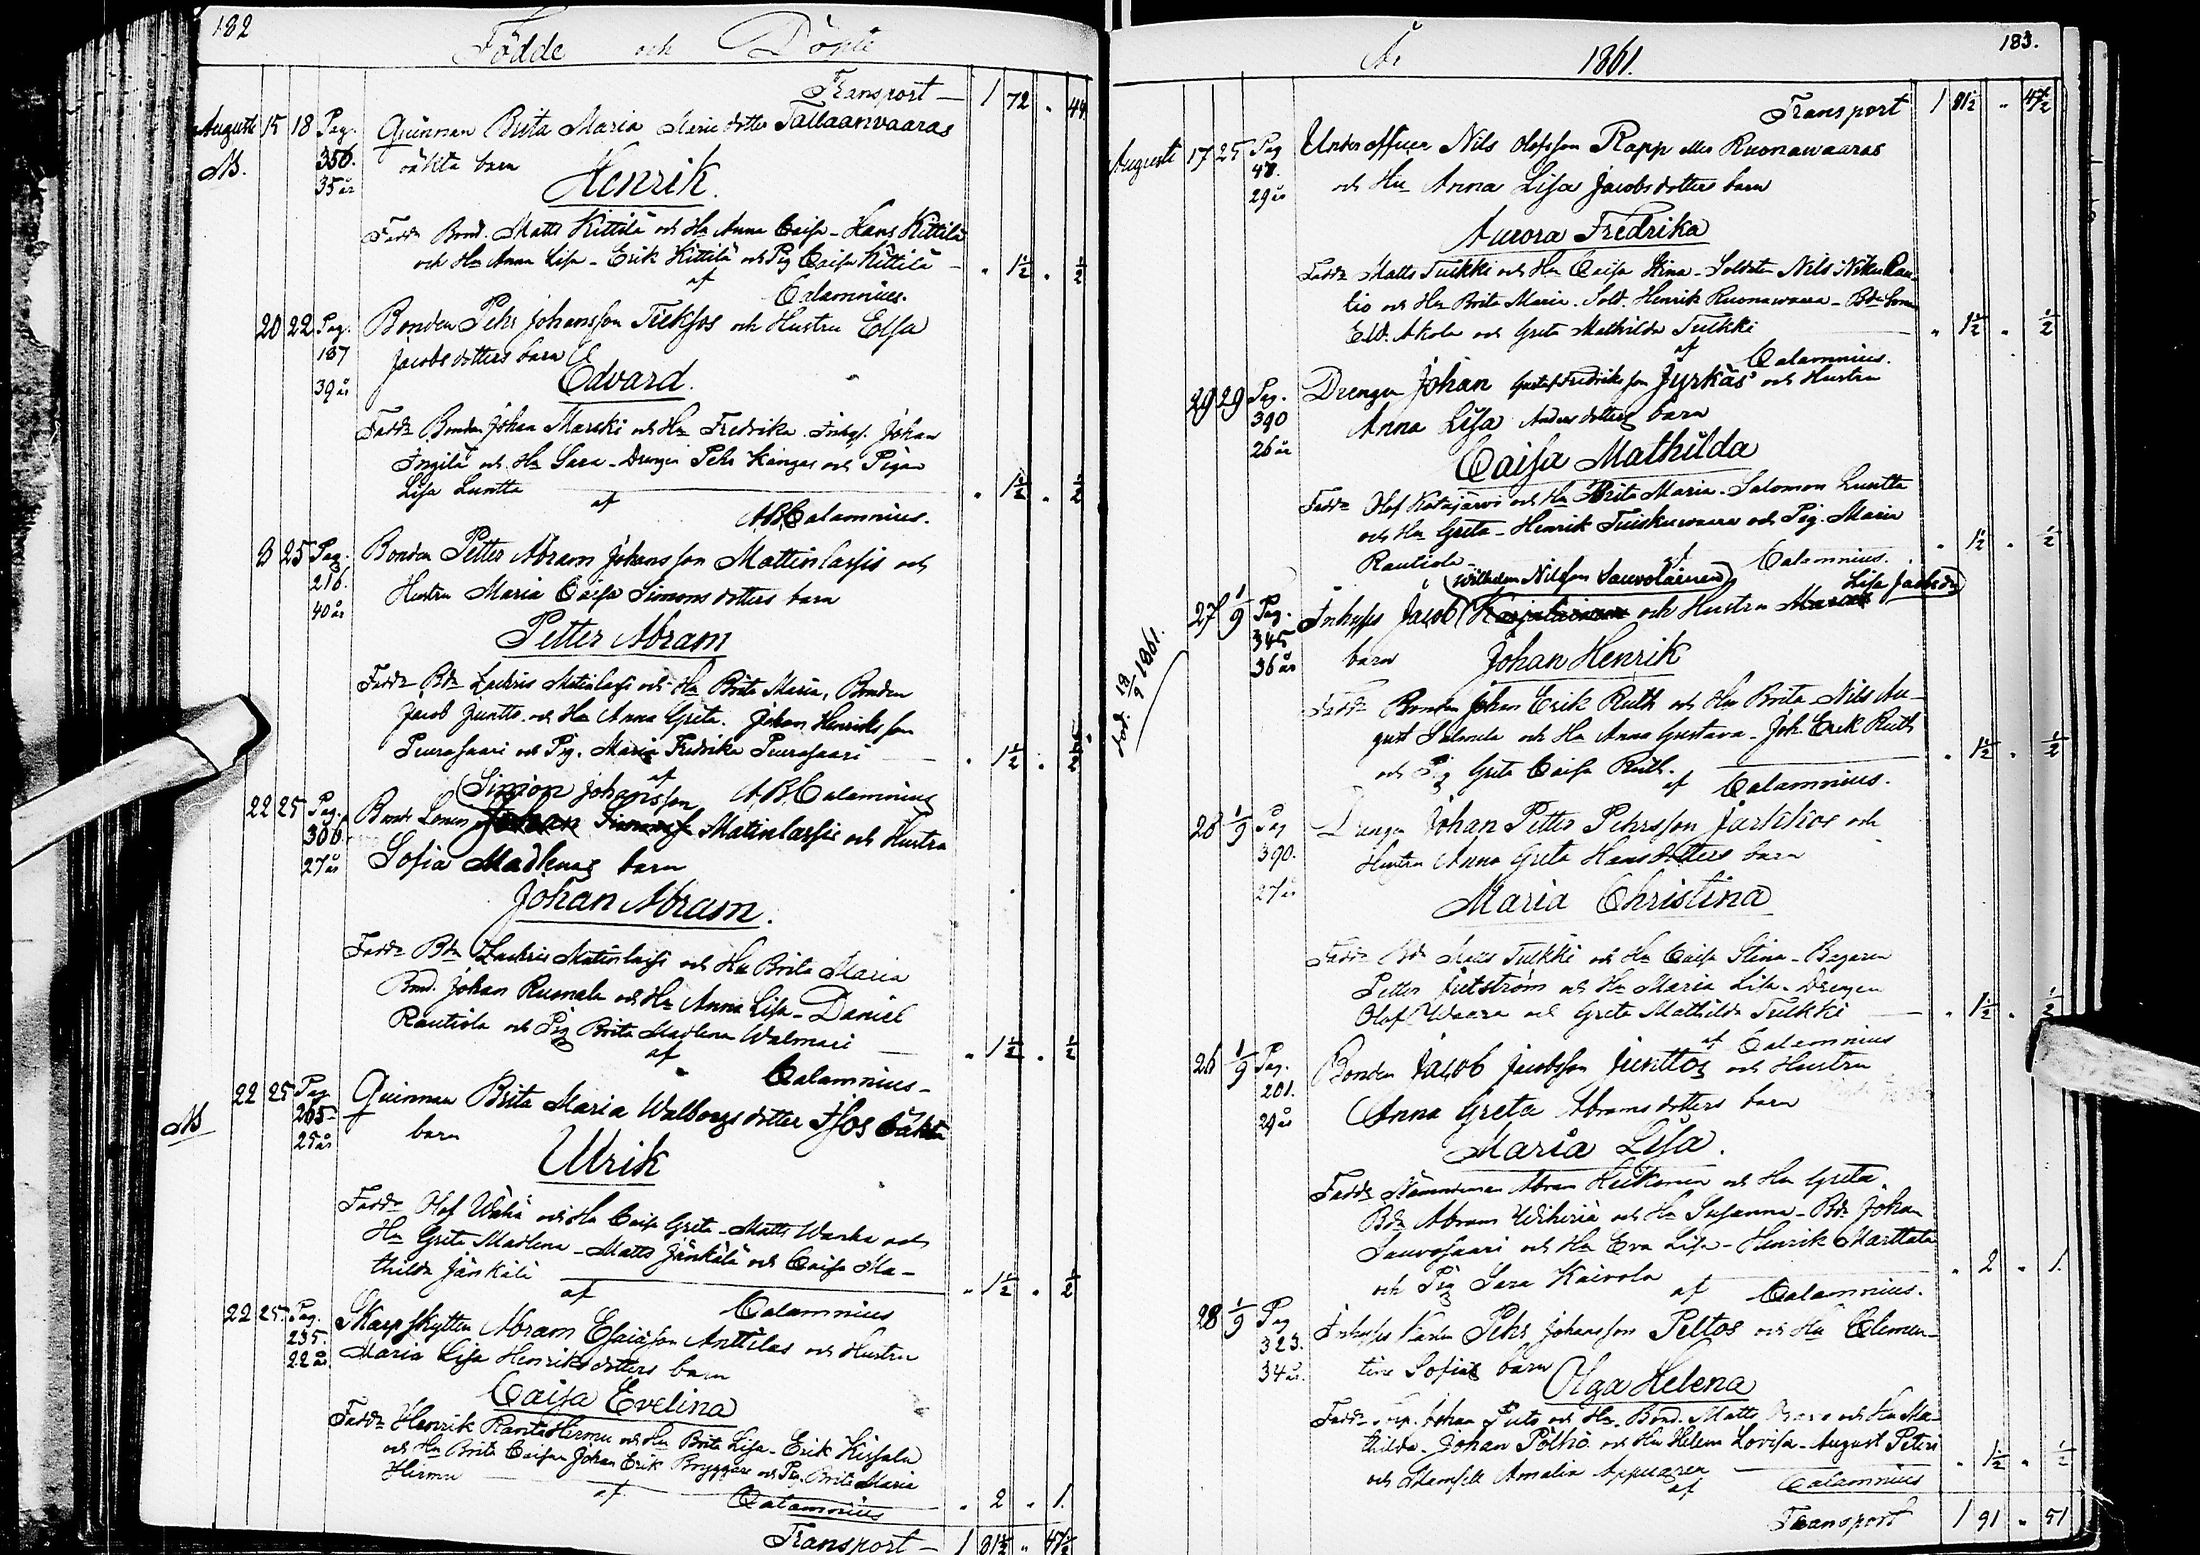 182
Födde och Döpte
Transport — 1 72 . 44
Augusti 15 18 Pag. 356. 35 år Quinnan Brita Maria Maria dotter Tallaanvaaras
oäkta barn
Henrik.
Fadd. Bond. Matts Kittilä och Hu Anna Caisa - Hans Kittilä
och Hu Anna Lisa - Erik Kittilä och Pig Caisa Kittilä — . 1½ . ½
af
Calamnius.
20 22 Pag. 187 39 år Bonden Pehr Johansson Tulkjos och Hustru Elsa
Jacobsdotters barn
Edvard.
Fadd. Bonden Johan Marski och Hu Fredrika. Inhys. Johan
Ingilä och Hu Sara - Drengen Pehr Kangas och Pigan
Lisa Luntta — . 1½ . ½
af
A.B. Calamnius.
3 25 Pag. 216. 40 år Bonden Petter Abram Johansson Mattinlassis och
Hustru Maria Caisa Simonsdotters barn
Petter Abram
Fadd. Bdn Zachris Matinlassi och Hu Brita Maria, Bonden
Jacob Juntto och Hu Anna Greta. Johan Henriksson
Peurasaari och Pig. Maria Fredrika Peurasaari — . 1½ . ½
af
A.B. Calamnius
(Simon Johansson)
22 25 Pag. 306. 27 år Bonde Sonen Johan Simonss. Matinlassis och Hustru
Sofia Madlenas barn
Johan Abram.
Fadd. Bdn Zachris Matinlassi och Hu Brita Maria
Bond. Johan Ruonala och Hu Anna Lisa - Daniel
Rautiola och Pig Brita Madlena Walmari — . 1½ . ½
af
Calamnius -
22 25 Pag 265 25 år Quinnan Brita Maria Walborgsdotter Isos oäkta
barn
Ulrik
Fadd. Olof Wähä och Hu Caisa Greta - Matts Wanha och
Hu Greta Madlena - Matts Jänkälä och Caisa Ma-
thilda Jänkälä — . 1½ . ½
af
Calamnius
22 25. Pag. 235. 22 år Skarpskytten Abram Esaiason Anttilas och Hustru
Maria Lisa Henriksdotters barn
Caisa Evelina
Fadd. Henrik Ranta Hirmu och Hu Brita Lisa - Erik Kissala
och Hu Brita Caisa Johan Erik Bryggare och Pig. Brita Maria
Hirmu — . 2 . 1.
af Calamnius
Transport — 1 81½ . 47½
183.
År 1861.
Transport 1 81½ . 47½
Augusti 17 25 Pag 48. 29 år Underofficer Nils Olofsson Rapp eller Ruonawaaras
och Hu Anna Lisa Jacobsdotters barn
Aurora Fredrika
Fadd. Matts Tulkki och Hu Caisa Stina - Soldaten Nils Niku Rau
tio och Hu Brita Maria. Sold. Henrik Ruonawaara - Bde Sonen
Edd. Akola och Greta Mathilda Tulkki — . 1½ . ½
af Calamnius.
29 29 Pag. 390 26 år Drengen Johan Gustaf Fredriksson Jyrkäs och Hustru
Anna Lisa Andersdotters barn
Caisa Mathilda
Fadd. Olof Katajärvi och Hu Brita Maria - Salomon Luntta
och Hu Greta - Henrik Tuiskuwaara och Pig. Maria
Rautiola . 1½ . ½
af Calamnius.
(Wilhelm Nilsson Sauvolainen) Lisa Jacobsdr
27 1/9 Pag. 345 36 år Inhyses Jacob Karjalainen och Hustru Marias
barn Johan Henrik
död. 19/9 1861.
Fadd. Bonden Johan Erik Ruth och Hu Brita - Nils Au-
gust Salmela och Hu Anna Gustava - Joh. Erik Ruth
och Pig Greta Caisa Ruth. — . 1½ . ½
af Calamnius.
28 1/9 Pag 390. 27 år Drengen Johan Petter Pehrsson Jurkkos och
Hustru Anna Greta Hansdotters barn
Maria Christina
Fadd. Bdn Matts Tulkki och Hu Caisa Stina - Bagaren
Petter Sjetström och Hu Maria Lisa - Drengen
Olof Waara och Greta Mathilda Tulkki — . 1½ . ½
af Calamnius
26 1/9 Pag. 201. 29 år Bonden Jacob Jacobsson Junttos och Hustru
Anna Greta Abramsdotters barn
Maria Lisa.
Fadd. Nämndeman Abram Heikkinen och Hu Greta.
Bdn Abram Wiheriä och Hu Susanna - Bdn Johan
Sauvosaari och Hu Eva Lisa - Henrik Marttala
och Pig Sara Kaivola — . 2 . 1.
af Calamnius.
28 1/9 Pag 323. 34 år. Inhyses Karlen Pehr Johansson Peltos och Hu Clemen-
tine Sofias barn
Olga Helena
Johan och Hu. Bond. Matts och Hu Ma-
thilda - Johan Pölhö och Hu Helena Lovisa - August Peteri
och Mamsell Amalia — . 1½ . ½
af Calamnius
Transport 1 91 . 51